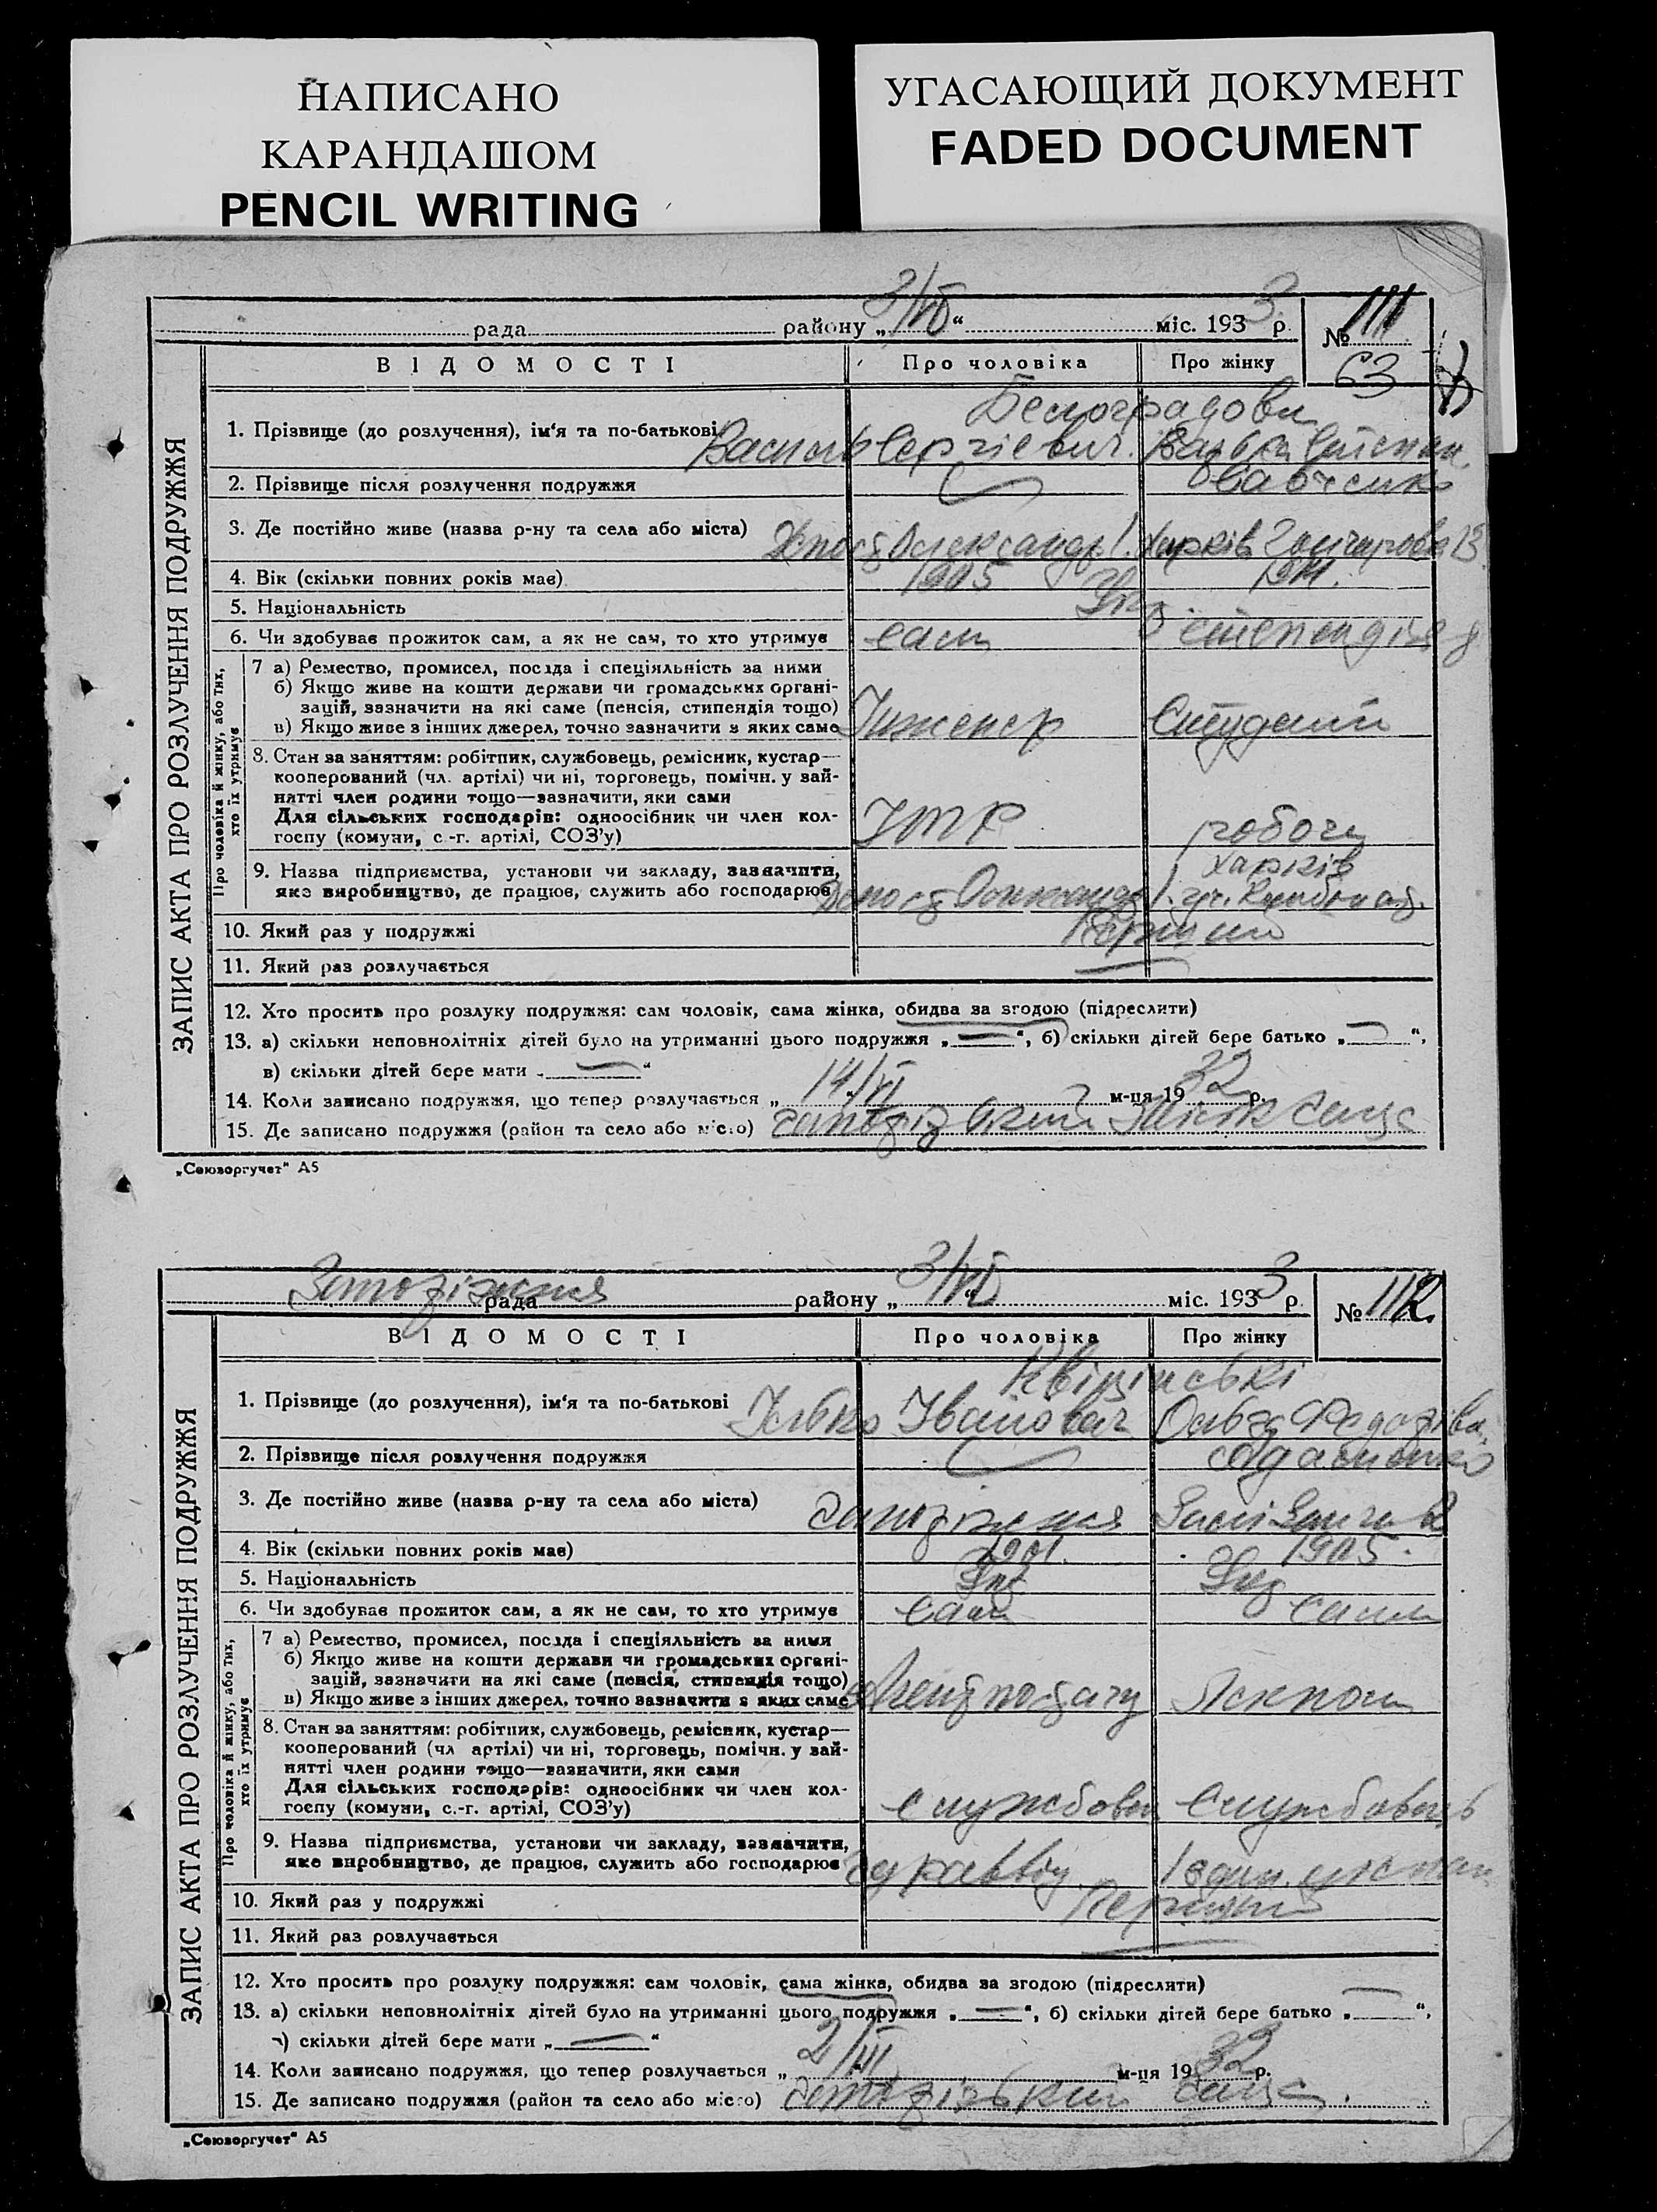 НАПИСАНО
КАРАНДАШОМ
PENCIL WRITING
УГАСАЮЩИЙ ДОКУМЕНТ
FADED DOCUMENT
рада района „3/VII“ міс. 1933 р. № 111
63
ЗАПИС АКТА ПРО РОЗЛУЧЕННЯ ПОДРУЖЖЯ
ВІДОМОСТІ Про чоловіка Про жінку
Белоградови
1. Прізвище (до розлучення), ім'я та по-батькові Василь Сергієвич
2. Прізвище після розлучення подружжя
3. Де постійно живе (назва р-ну та села або міста) Харків Гончарова
4. Вік (скільки повних років має) 1905 1911.
5. Національність Укр
6. Чи здобуває прожиток сам, а як не сам, то хто утримує сам стипендія
Про чоловіка й жінку, або тих, хто їх утримує
7 а) Ремество, промисел, посада і спеціяльність за ними
б) Якщо живе на кошти держави чи громадських органі-
зацій, зазначити на які саме (пенсія, стипендія тощо)
в) Якщо живе з інших джерел, точно зазначити з яких саме Інженер Студент
8. Стан за заняттям: робітник, службовець, ремісник, кустар—
кооперований (чл. артілі) чи ні, торговець, помічн. у зай-
нятті член родини тощо—зазначити, яки сами
Для сільських господарів: одноосібник чи член кол-
госпу (комуни, с.-г. артілі, СОЗ'у) ІТР робоча
Харків
9. Назва підприємства, установи чи закладу, зазначити,
яке виробництво, де працює, служить або господарює
10. Який раз у подружжі Перший
11. Який раз розлучається
12. Хто просить про розлуку подружжя: сам чоловік, сама жінка, обидва за згодою (підреслити)
13. а) скільки неповнолітніх дітей було на утриманні цього подружжя „—“, б) скільки дітей бере батько „—“,
в) скільки дітей бере мати „—“
14. Коли записано подружжя, що тепер розлучається „14/VI м-ця 1932 р.
15. Де записано подружжя (район та село або місто) загса
„Союзоргучет“ А5
Запоріжжя рада району „3/VII“ міс. 1933 р. № 112
ЗАПИС АКТА ПРО РОЗЛУЧЕННЯ ПОДРУЖЖЯ
ВІДОМОСТІ Про чоловіка Про жінку
Квіцінські
1. Прізвище (до розлучення), ім'я та по-батькові Ілько Іванович Ольга Федорівна
2. Прізвище після розлучення подружжя
3. Де постійно живе (назва р-ну та села або міста) Запоріжжя
4. Вік (скільки повних років має) 1901. 1905.
5. Національність Укр Укр
6. Чи здобуває прожиток сам, а як не сам, то хто утримує сам сама
Про чоловіка й жінку, або тих, хто їх утримує
7 а) Ремество, промисел, посада і спеціяльність за ними
б) Якщо живе на кошти держави чи громадських органі-
зацій, зазначити на які саме (пенсія, стипендія тощо)
в) Якщо живе з інших джерел, точно зазначити з яких саме Агент постачу Лекпом
8. Стан за заняттям: робітник, службовець, ремісник, кустар—
кооперований (чл артілі) чи ні, торговець, помічн. у зай-
нятті член родини тощо—зазначити, яки сами
Для сільських господарів: одноосібник чи член кол-
госпу (комуни, с.-г. артілі, СОЗ'у) службовец Службовець
9. Назва підприємства, установи чи закладу, зазначити,
яке виробництво, де працює, служить або господарює
10. Який раз у подружжі Перший
11. Який раз розлучається
12. Хто просить про розлуку подружжя: сам чоловік, сама жінка, обидва за згодою (підреслити)
13. а) скільки неповнолітніх дітей було на утриманні цього подружжя „—“, б) скільки дітей бере батько „—“,
в) скільки дітей бере мати „—“
14. Коли записано подружжя, що тепер розлучається „2/III м-ця 1932 р.
15. Де записано подружжя (район та село або місто) Запорізький загс.
„Союзоргучет“ А5